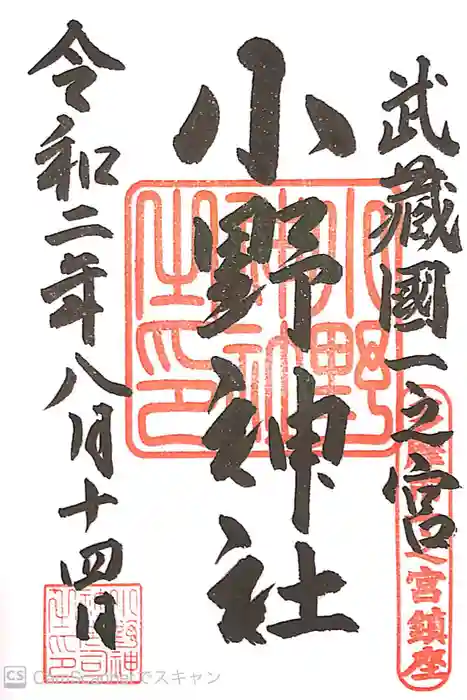 武蔵國一之宮
小野神社
令和二年八月十四日
之宮鎮座
小野神社之印
CS CamScannerでスキャン